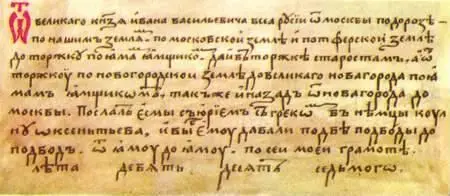 Ѿ великаго кнѕѧ ивана васильевича всеа русїи ѿ москвы по дорозѣ
по нашим землѧ по московской землѣ и по тферской землѣ
до торжку по ꙗма ꙗмщико. да и в торжкѣ старостам, а ѿ
торжкоу по новогородской землѣ до великого новагорода по ꙗ
мам ꙗмщиком, также и назад ѿ новагорода до
москвы. Послалъ есмы съ юрїем грекѡ въ нѣмцы коул
ноу ѡксеньтьева, и вы ємоу давали по двѣ подводы до
подвод. ѿ ꙗмоу до ꙗмоу. по сеи моеи грамотѣ.
лѣта девѧть десѧть седьмого.